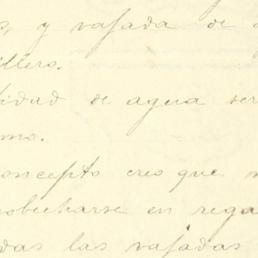 y vajada de
illero.
idad de agua ser
mo.
oncepto creo que
robecharse en rega
das las vajadas